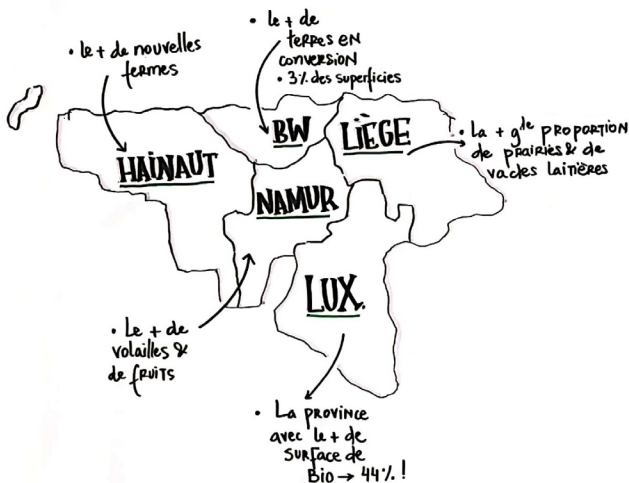 • le + de nouvelles
fermes
• le + de
terres en
conversion
• 3% des superficies
BW
LIÈGE
• La + gde proportion
de prairies & de
vaches laitières
HAINAUT
NAMUR
LUX.
• Le + de
volailles &
de fruits
• La province
avec le + de
surface de
Bio → 44% !